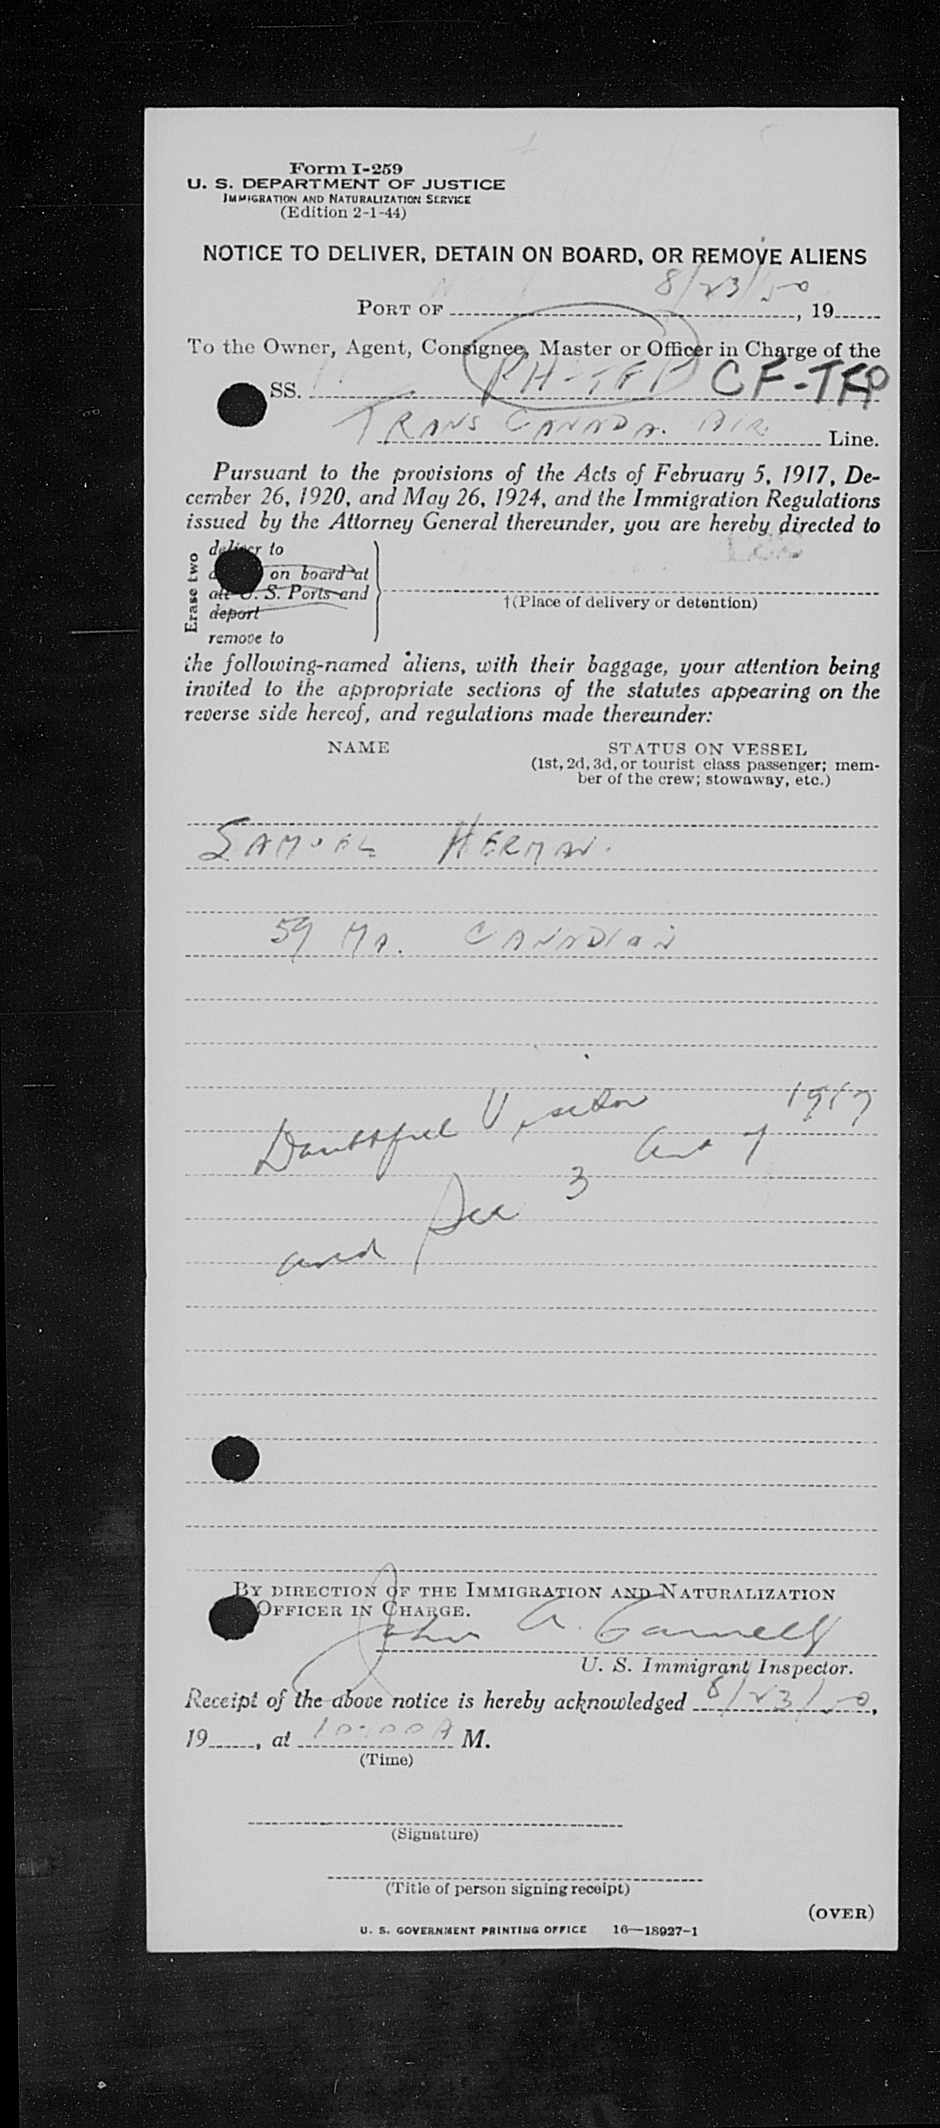 Form I-259
U. S. DEPARTMENT OF JUSTICE
IMMIGRATION AND NATURALIZATION SERVICE
(Edition 2-1-44)
NOTICE TO DELIVER, DETAIN ON BOARD, OR REMOVE ALIENS
8/23/50
PORT OF ............, 19......
To the Owner, Agent, Consignee, Master or Officer in Charge of the
SS. PH-TFF CF-TFD
TRANS CANADA. AIR. Line.
Pursuant to the provisions of the Acts of February 5, 1917, De-
cember 26, 1920, and May 26, 1924, and the Immigration Regulations
issued by the Attorney General thereunder, you are hereby directed to
Erase two
deliver to
on board at
all U. S. Ports and
deport
remove to
†(Place of delivery or detention)
the following-named aliens, with their baggage, your attention being
invited to the appropriate sections of the statutes appearing on the
reverse side hereof, and regulations made thereunder:
NAME STATUS ON VESSEL
(1st, 2d, 3d, or tourist class passenger; mem-
ber of the crew; stowaway, etc.)
SAMUEL HERMAN.
59 MA. CANADIAN
Doubtful Visitor
and Sec 3 Act of 1917
BY DIRECTION OF THE IMMIGRATION AND NATURALIZATION
OFFICER IN CHARGE.
John A.
U. S. Immigrant Inspector.
Receipt of the above notice is hereby acknowledged 8/23/50,
19......, at 10:00 A M.
(Time)
(Signature)
(Title of person signing receipt)
(OVER)
U. S. GOVERNMENT PRINTING OFFICE 16—18927-1